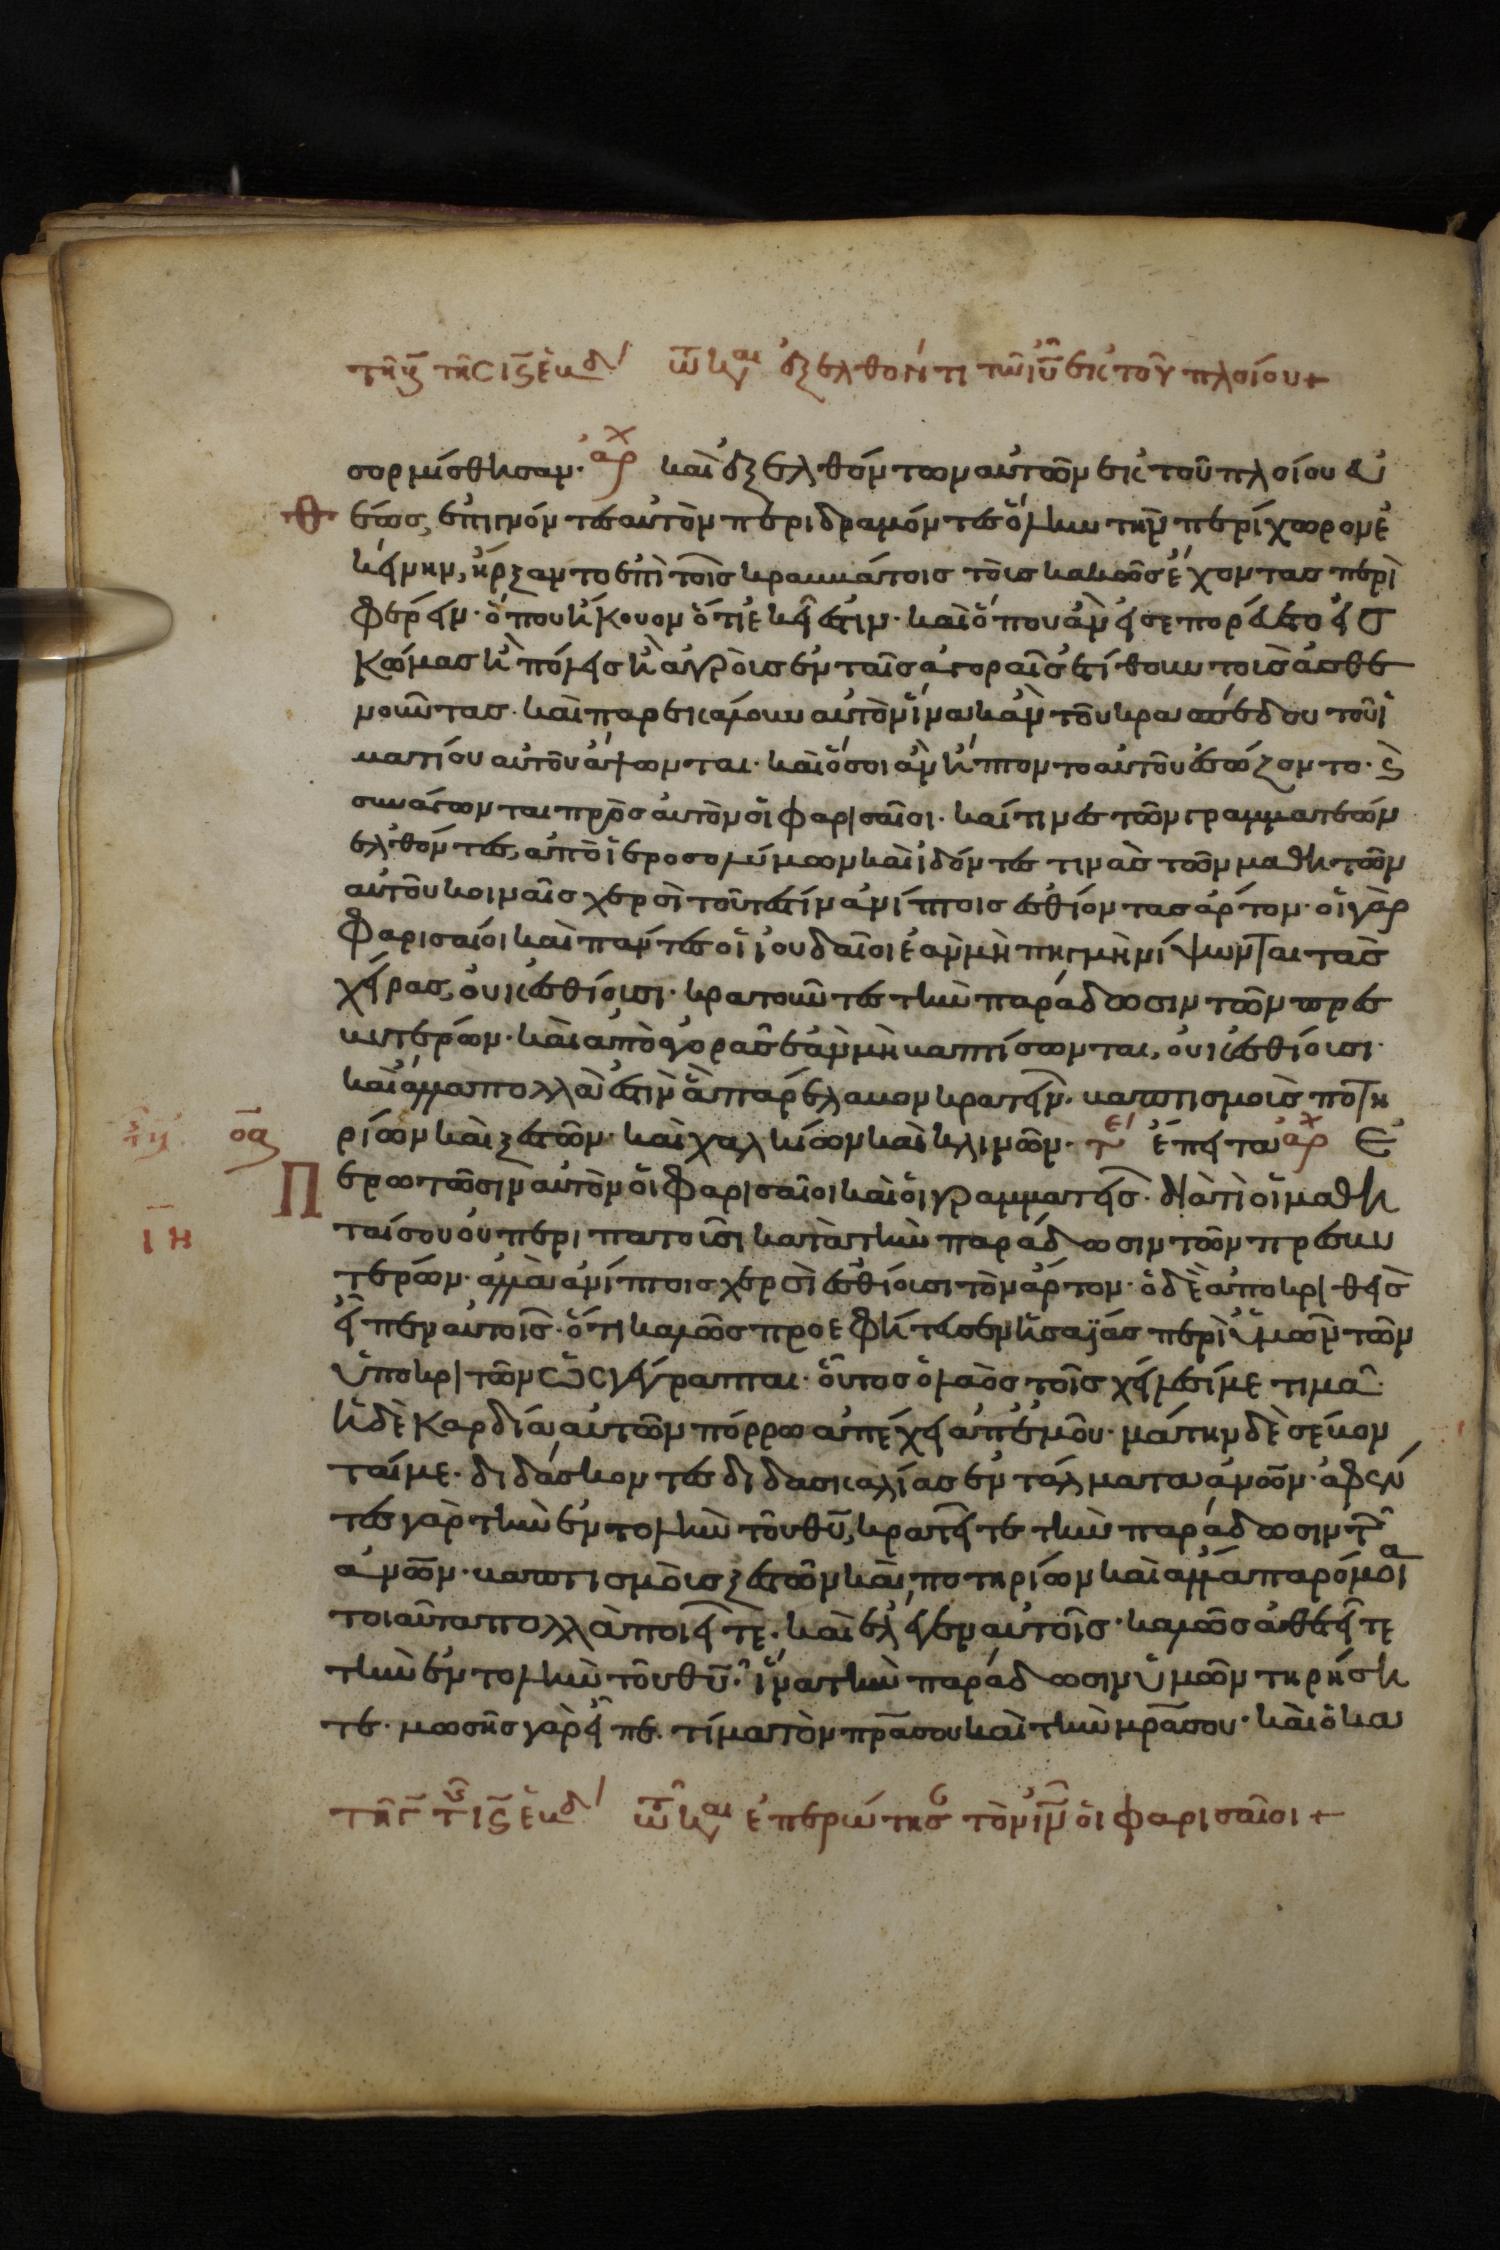 τῆ ϛ̄ τῆς ιϛ̄ ἑβδ τῶ κ αι ἐξελθόντι τῶ ιῦ ἐκ τοῦ πλοίου +
σορμίσθησαν· ἀρχ καὶ ἐξελθόντων αὐτῶν ἐκ τοῦ πλοίου εὐ
θέως, ἐπιγνόντες αὐτὸν περιδραμόντες ὅλην τὴν περίχωρον ἐ
κείνην, ἤρξαντο ἐπὶ τοῖς κραββάτοις τοὺς κακῶς ἔχοντας περι
φέρειν· ὅπου ἤκουον ὅτι ἐκεῖ ἐστιν· καὶ ὅπου ἂν εἰσεπορεύετο εἰς
κώμας ἢ πόλεις ἢ ἀγροὺς ἐν ταῖς ἀγοραῖς ἐτίθουν τοὺς ἀσθε
νοῦντας· καὶ παρεκάλουν αὐτὸν ἵνα κἂν τοῦ κρασπέδου τοῦ ἱ
ματίου αὐτοῦ ἅψωνται· καὶ ὅσοι ἂν ἥπτοντο αὐτοῦ ἐσώζοντο· ϗ
συνάγονται πρὸς αὐτὸν οἱ φαρισαῖοι· καί τινες τῶν γραμματέων
ἐλθόντες, ἀπὸ ἱεροσολύμων καὶ ἰδόντες τινὰς τῶν μαθητῶν
αὐτοῦ κοιναῖς χερσὶ τοῦτέστιν ἀνίπτοις ἐσθίοντας ἄρτον· οἱ γὰρ
φαρισαίοι καὶ πάντες οἱ ἰουδαῖοι ἐὰν μὴ πηγμὴ νίψωνται τὰς
χεῖρας, οὐκ ἐσθίουσι· κρατοῦντες τὴν παράδωσιν τῶν πρεσ
βυτέρων· καὶ ἀπὸ ἀγορᾶς ἐὰν μὴ βαπτίσωνται, οὐκ ἐσθίουσι·
καὶ ἄλλα πολλά ἐστὶν ἃ παρέλαβον κρατεῖν· βαπτισμοὺς ποτη
ρίων καὶ ξεστῶν· καὶ χαλκίων καὶ κλινῶν· τε ἔπειτα ἀρχ Ε
Περωτῶσιν αὐτὸν οἱ φαρισαῖοι καὶ οἱ γραμματεῖς· διὰ τὶ οἱ μαθη
ταί σου οὐ περιπατοῦσι κατὰ τὴν παράδωσιν τῶν πρεσβυ
τέρων· ἀλλὰ ἀνίπτοις χερσὶ ἐσθίουσι τὸν ἄρτον· ὁ δὲ ἀποκριθεὶς
εἶπεν αὐτοῖς· ὅτι καλῶς προεφήτευσεν ἡσαΐας περὶ ὑμῶν τῶν
ὑποκριτῶν ὡς γέγραπται· οὗτος ὁ λαὸς τοῖς χείλεσί με τιμᾶ·
ἡ δὲ καρδία αὐτῶν πόρρω ἀπέχει ἀπ' ἐμοῦ· μάτην δὲ σέβον
ταί με· διδάσκοντες διδασκαλίας ἐντάλματα ἀνῶν· ἀφέν
τες γὰρ τὴν ἐντολὴν τοῦ θῡ, κρατεῖτε τὴν παράδωσιν τῶν
ἀνῶν· βαπτισμοὺς ξεστῶν καὶ ποτηρίων καὶ ἄλλα παρόμοια
τοιαῦτα πολλὰ ποιεῖτε· καὶ ἔλεγεν αὐτοῖς· καλῶς ἀθετεῖτε
τὴν ἐντολὴν τοῦ θῡ· ἵνα τὴν παράδωσιν ὑμῶν τηρήση
τε· μωσῆς γὰρ εἶπε· τίμα τὸν πρᾱ σου καὶ τὴν μρᾱ σου· καὶ ὁ κα
οα
ιη
τῆ γ̄ τῆς ιϛ̄ ἑβδ τῶ κ αι ἐπερώτησ τὸν ιν̄ οἱ φαρισαῖοι +